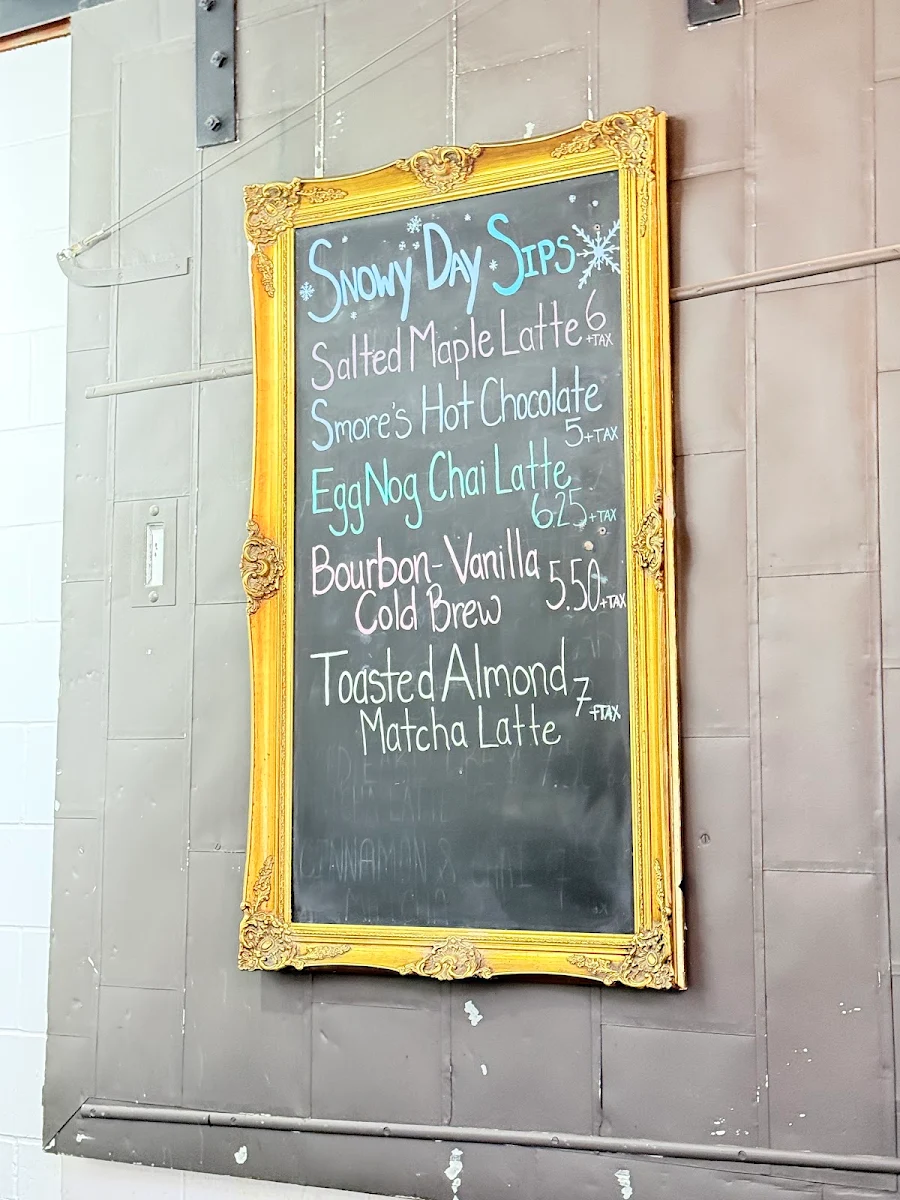 Snowy Day Sips
Salted Maple Latte 6
+TAX
Smore's Hot Chocolate
5+TAX
Egg Nog Chai Latte
6.25+TAX
Bourbon-Vanilla
Cold Brew 5.50+TAX
Toasted Almond 7
+TAX
Matcha Latte
CINNAMAN